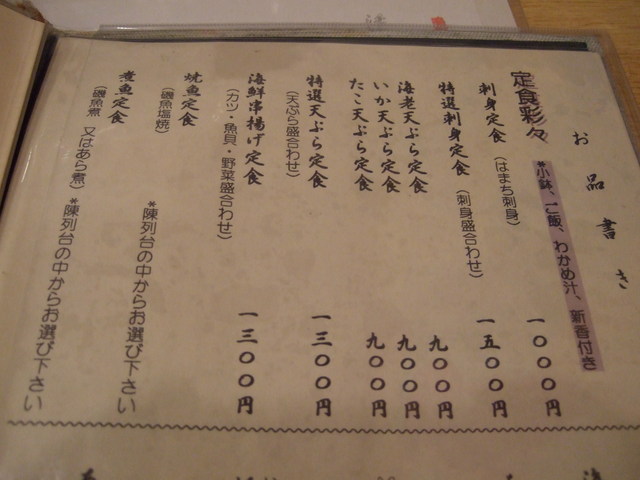 お品書き
定食彩々 *小鉢、ご飯、わかめ汁、新香付き
刺身定食 (はまち刺身) 一〇〇〇円
特選刺身定食 (刺身盛合わせ) 一五〇〇円
海老天ぷら定食 九〇〇円
いか天ぷら定食 九〇〇円
たこ天ぷら定食 九〇〇円
特選天ぷら定食 (天ぷら盛合わせ) 一三〇〇円
海鮮串揚げ定食 (カツ・魚貝・野菜盛合わせ) 一三〇〇円
焼魚定食 (磯魚塩焼) *陳列台の中からお選び下さい
煮魚定食 (磯魚煮 又はあら煮) *陳列台の中からお選び下さい